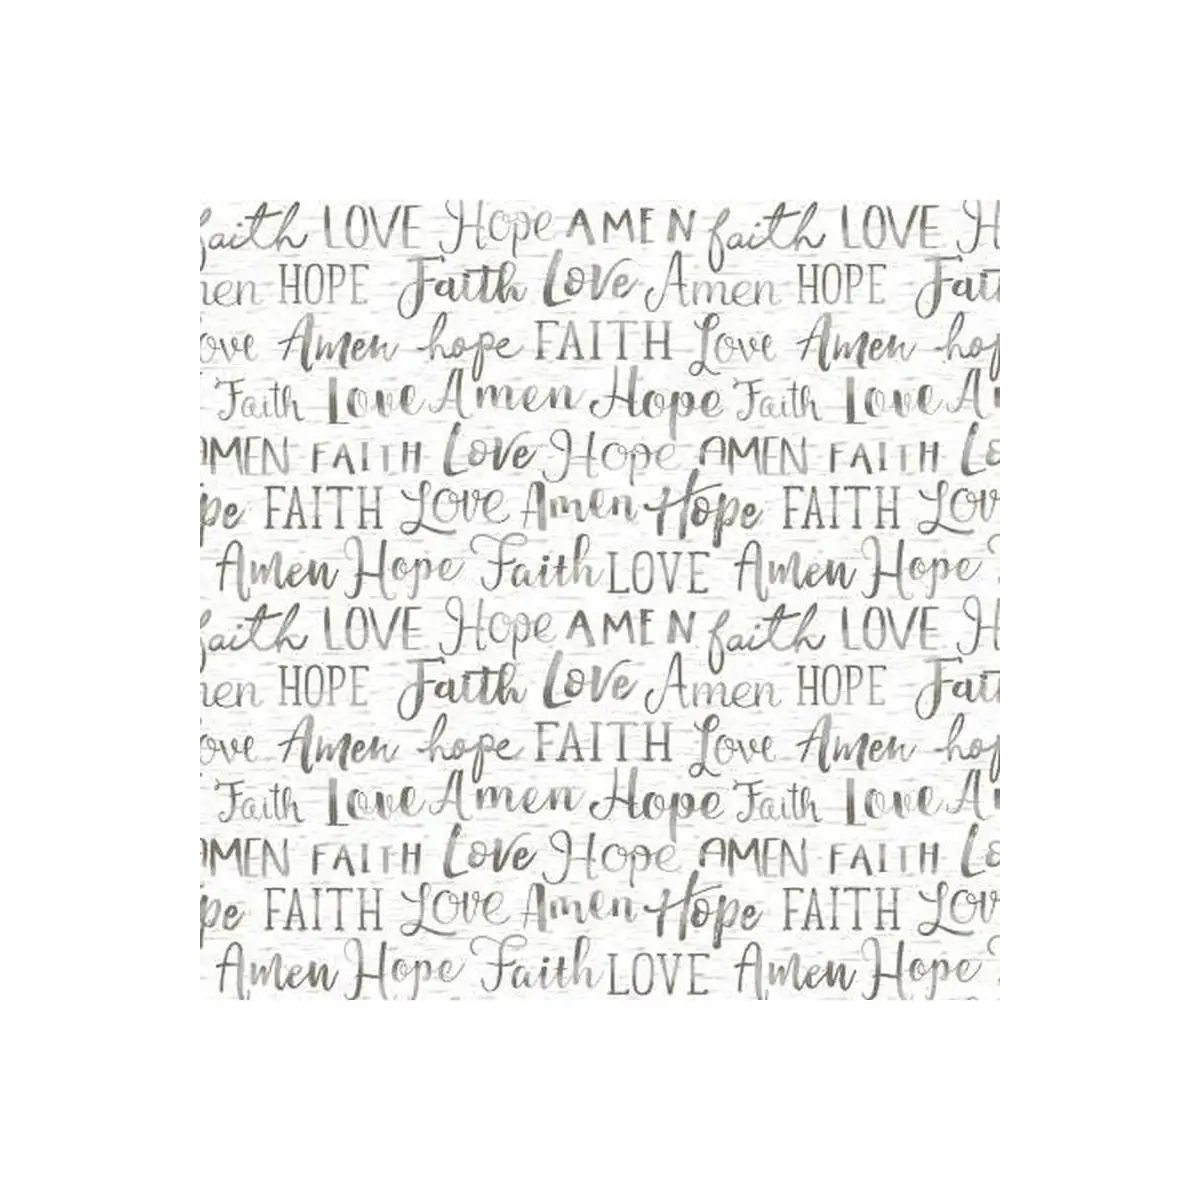 faith LOVE Hope AMEN faith LOVE H
en HOPE Faith Love Amen HOPE Fait
ove Amen hope FAITH Love Amen hop
Faith Love Amen Hope Faith Love A
AMEN FAITH Love Hope AMEN FAITH Lo
pe FAITH Love Amen Hope FAITH Lov
Amen Hope Faith LOVE Amen Hope
faith LOVE Hope AMEN faith LOVE H
en HOPE Faith Love Amen HOPE Fait
ove Amen hope FAITH Love Amen hop
Faith Love Amen Hope Faith Love A
AMEN FAITH Love Hope AMEN FAITH Lo
pe FAITH Love Amen Hope FAITH Lov
Amen Hope Faith LOVE Amen Hope